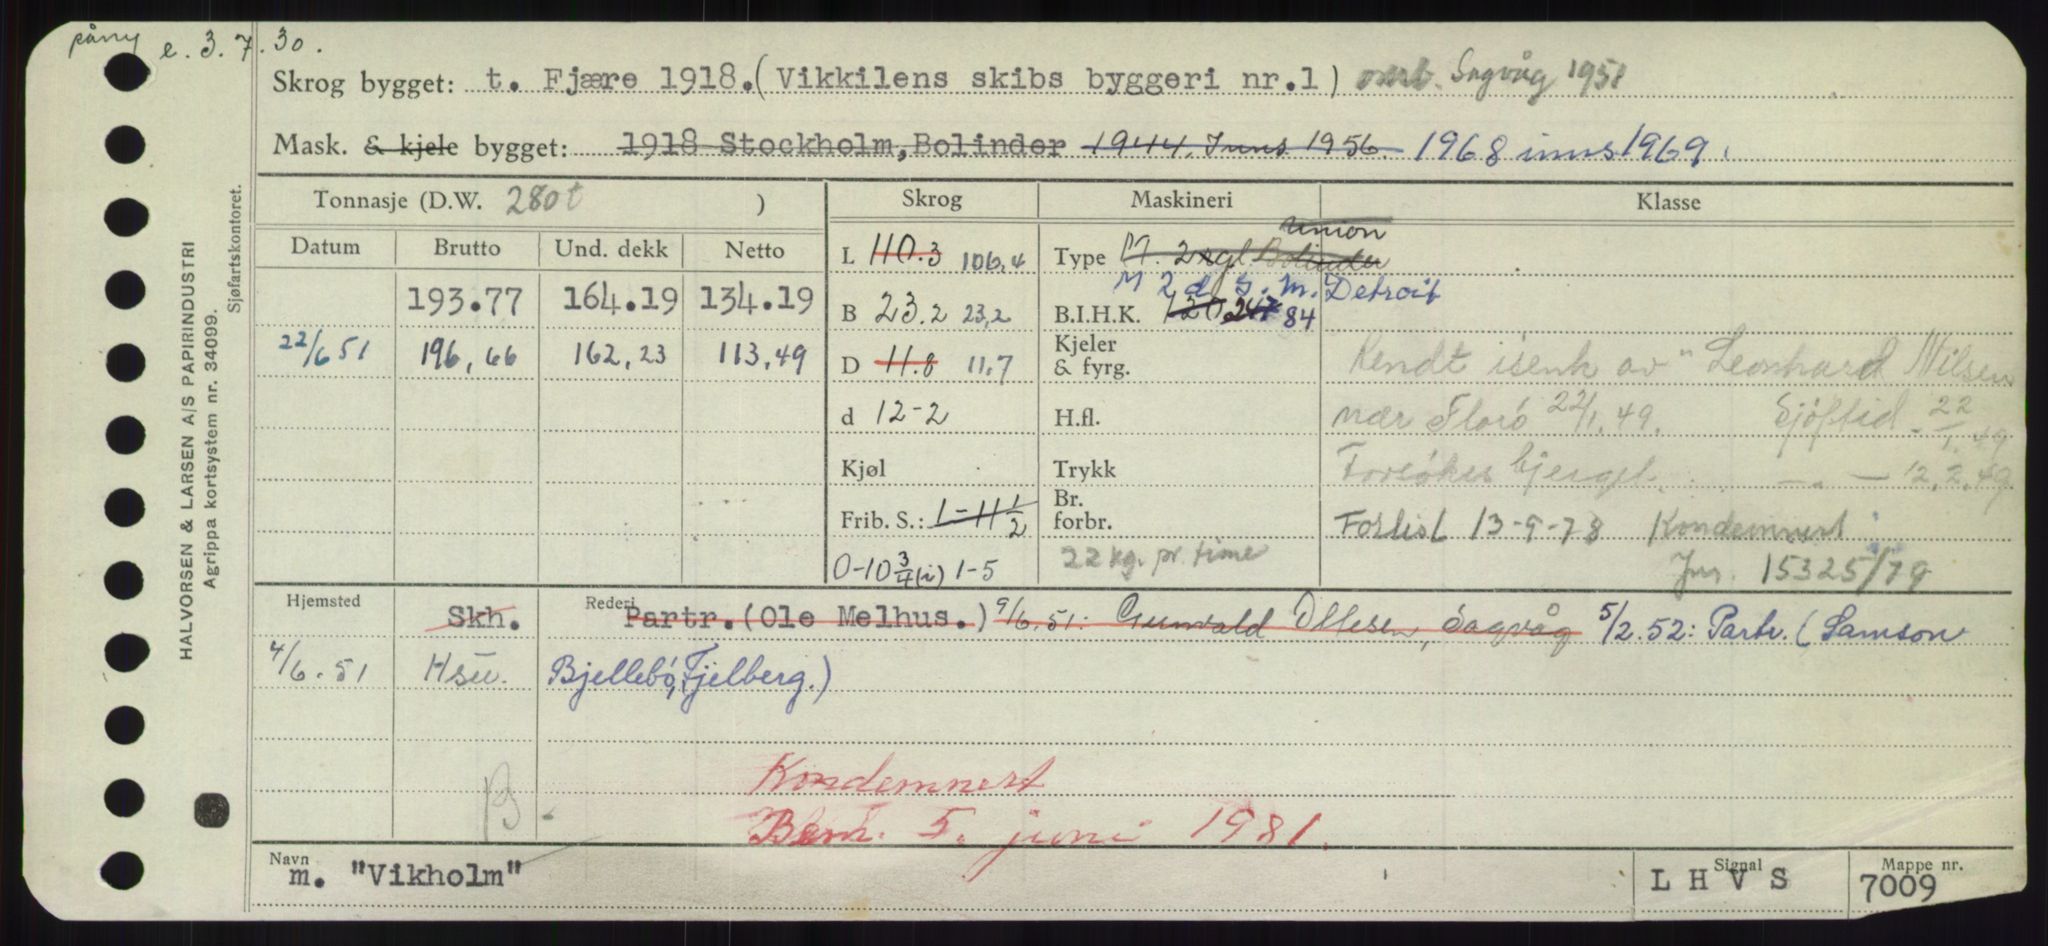 påny e. 3.7.30.
Skrog bygget: t. Fjære 1918.(Vikkilens skibs byggeri nr.1) omb. Sagvåg 1951
Mask. & kjele bygget: 1918 Stockholm, Bolinder 1944. Inns. 1956. 1968 inns 1969.
Tonnasje (D.W. 280t )
Skrog
Maskineri
Klasse
Datum Brutto Und. dekk Netto
193.77 164.19 134.19
22/6 51 196,66 162,23 113,49
L 110.3 106,4
B 23.2 23,2
D 11.8 11,7
d 12-2
Kjøl
Frib. S.: 1-11 1/2
0-10 3/4 (i) 1-5
Union
Type M 2 sgl. Bolinder
M 2 d s. m. Detroit
B.I.H.K. 120 247 84
Kjeler
& fyrg.
H.fl.
Trykk
Br.
forbr.
22 kg. pr. time
Rendt isenk av "Leonhard Nilsen
nær Florö 22/1.49. Sjöftid. 22/1.49
Forsökes bjerget. — " — 12.2.49
Forlist 13-9-78 Kondemnert
Jnr. 15325/79
Hjemsted
Rederi
Skh. Partr.(Ole Melhus.) 9/6.51: Gunvald Ottesen, Sagvåg 5/2.52: Partr. (Samson
4/6.51 Hsu. Bjellebö, Fjelberg.)
B -
Kondemnert
Bem. 5. juni 1981.
Navn
m. "Vikholm"
Signal
L H V S
Mappe nr.
7009
HALVORSEN & LARSEN A/S PAPIRINDUSTRI
Agrippa kortsystem nr. 34099.
Sjøfartskontoret.